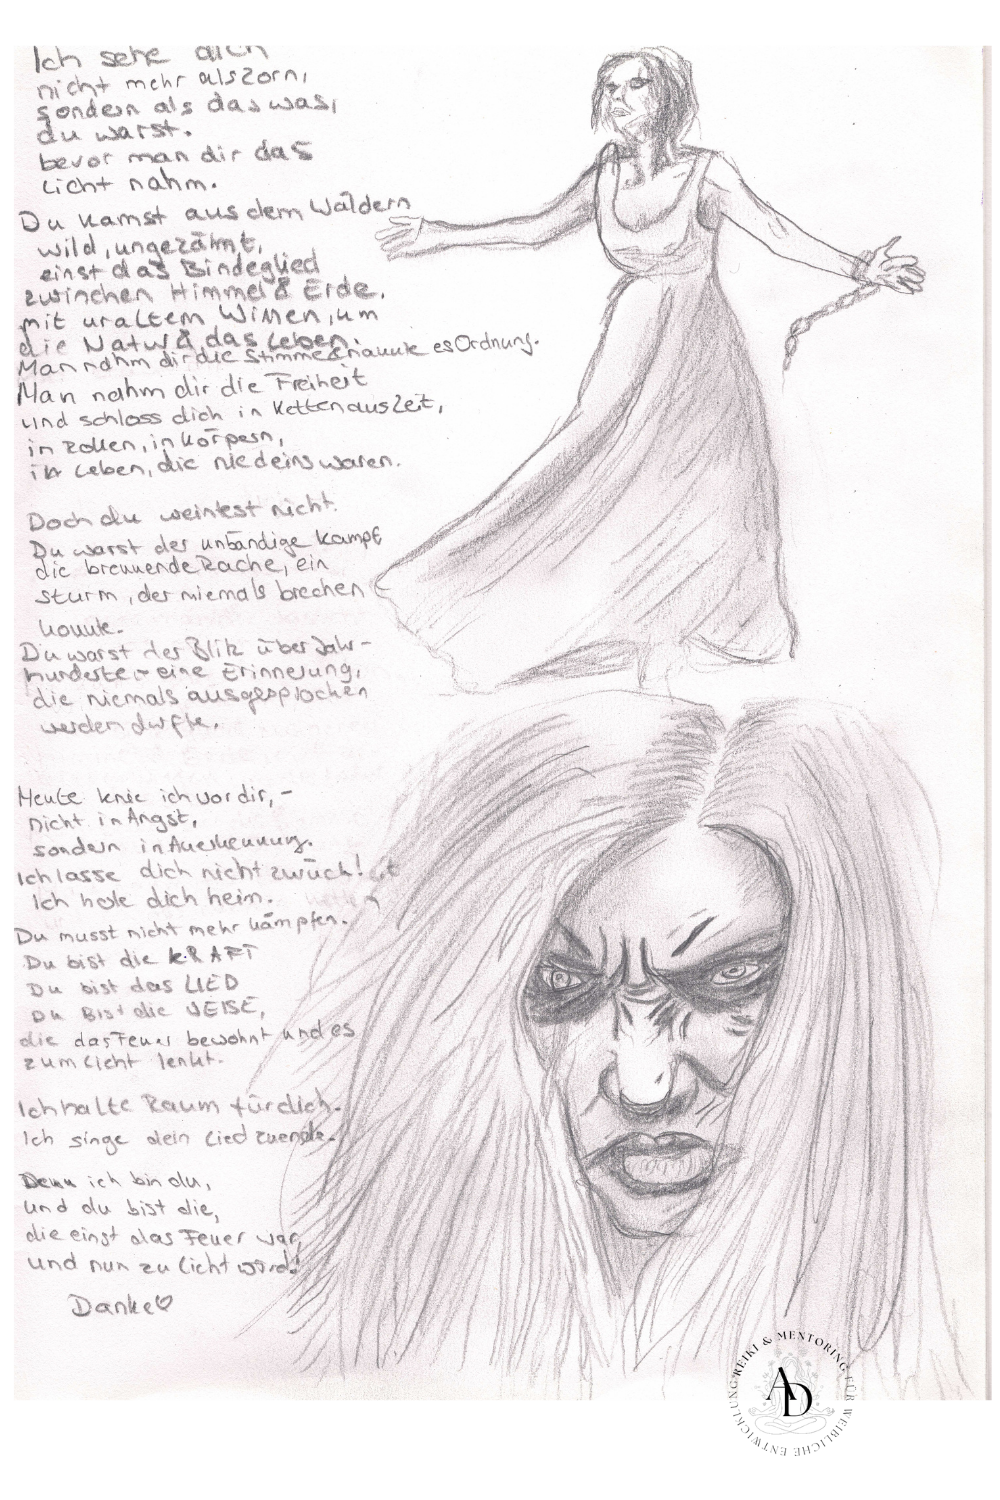 Ich sehe dich
nicht mehr als Zorn,
sondern als das was,
du warst.
bevor man dir das
Licht nahm.
Du kamst aus dem Wäldern
wild, ungezähmt,
einst das Bindeglied
zwischen Himmel & Erde,
mit uraltem Wissen, um
die Natur & das Leben.
Man nahm dir die Stimme & nannte es Ordnung.
Man nahm dir die Freiheit
und schloss dich in Ketten aus Zeit,
in Rollen, in Körpern,
in Leben, die nie deins waren.
Doch du weintest nicht.
Du warst der unbändige Kampf
die brennende Rache, ein
Sturm, der niemals brechen
konnte.
Du warst der Blitz über Jahr-
hunderte - eine Erinnerung,
die niemals ausgesprochen
werden durfte.
Heute knie ich vor dir, -
nicht in Angst,
sondern in Anerkennung.
Ich lasse dich nicht zurück!
Ich hole dich heim.
Du musst nicht mehr kämpfen.
Du bist die KRAFT
Du bist das LIED
Du Bist die WEISE,
die das Feuer bewohnt und es
zum Licht lenkt.
Ich halte Raum für dich.
Ich singe dein Lied zuende.
Denn ich bin du,
und du bist die,
die einst das Feuer war,
und nun zu Licht wird!
Danke♡
REIKI & MENTORING FÜR WEIBLICHE ENTWICKLUNG
AD